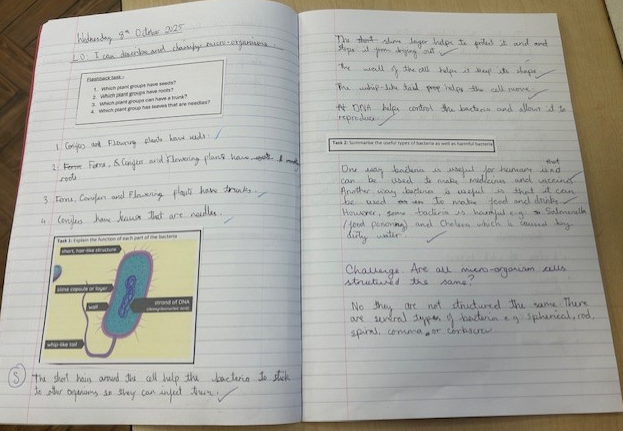 Wednesday 8th October 2025
L.O: I can describe and classify micro-organisms.
Flashback task:
1. Which plant groups have seeds?
2. Which plant groups have roots?
3. Which plant groups can have a trunk?
4. Which plant group has leaves that are needles?
1. Conifers and Flowering plants have seeds.
2. Ferns, Conifers and Flowering plants have
roots
3. Ferns, Conifers and Flowering plants have trunks.
4. Conifers have leaves that are needles.
Task 1: Explain the function of each part of the bacteria
short, hair-like structure
slime capsule or layer
wall
strand of DNA
whip-like tail
S The short hairs around the cell help the bacteria to stick
to other organisms so they can infect them.
The slime layer helps to protect it and and
stops it from drying out
The wall of the cell helps it keep its shape
The whip-like tail helps the cell move
DNA helps control the bacteria and allows it to
reproduce
Task 2: Summarise the useful types of bacteria as well as harmful bacteria
One way bacteria is useful for humans is that
can be used to make medicines and vaccines
Another way bacteria is useful is that it can
be used to make food and drinks
However, some bacteria is harmful e.g. Salmonella
(food poisoning) and Cholera which is caused by
dirty water
Challenge: Are all micro-organism cells
structured the same?
No they are not structured the same. There
are several types of bacteria e.g. spherical, rod,
spiral, comma or corkscrew